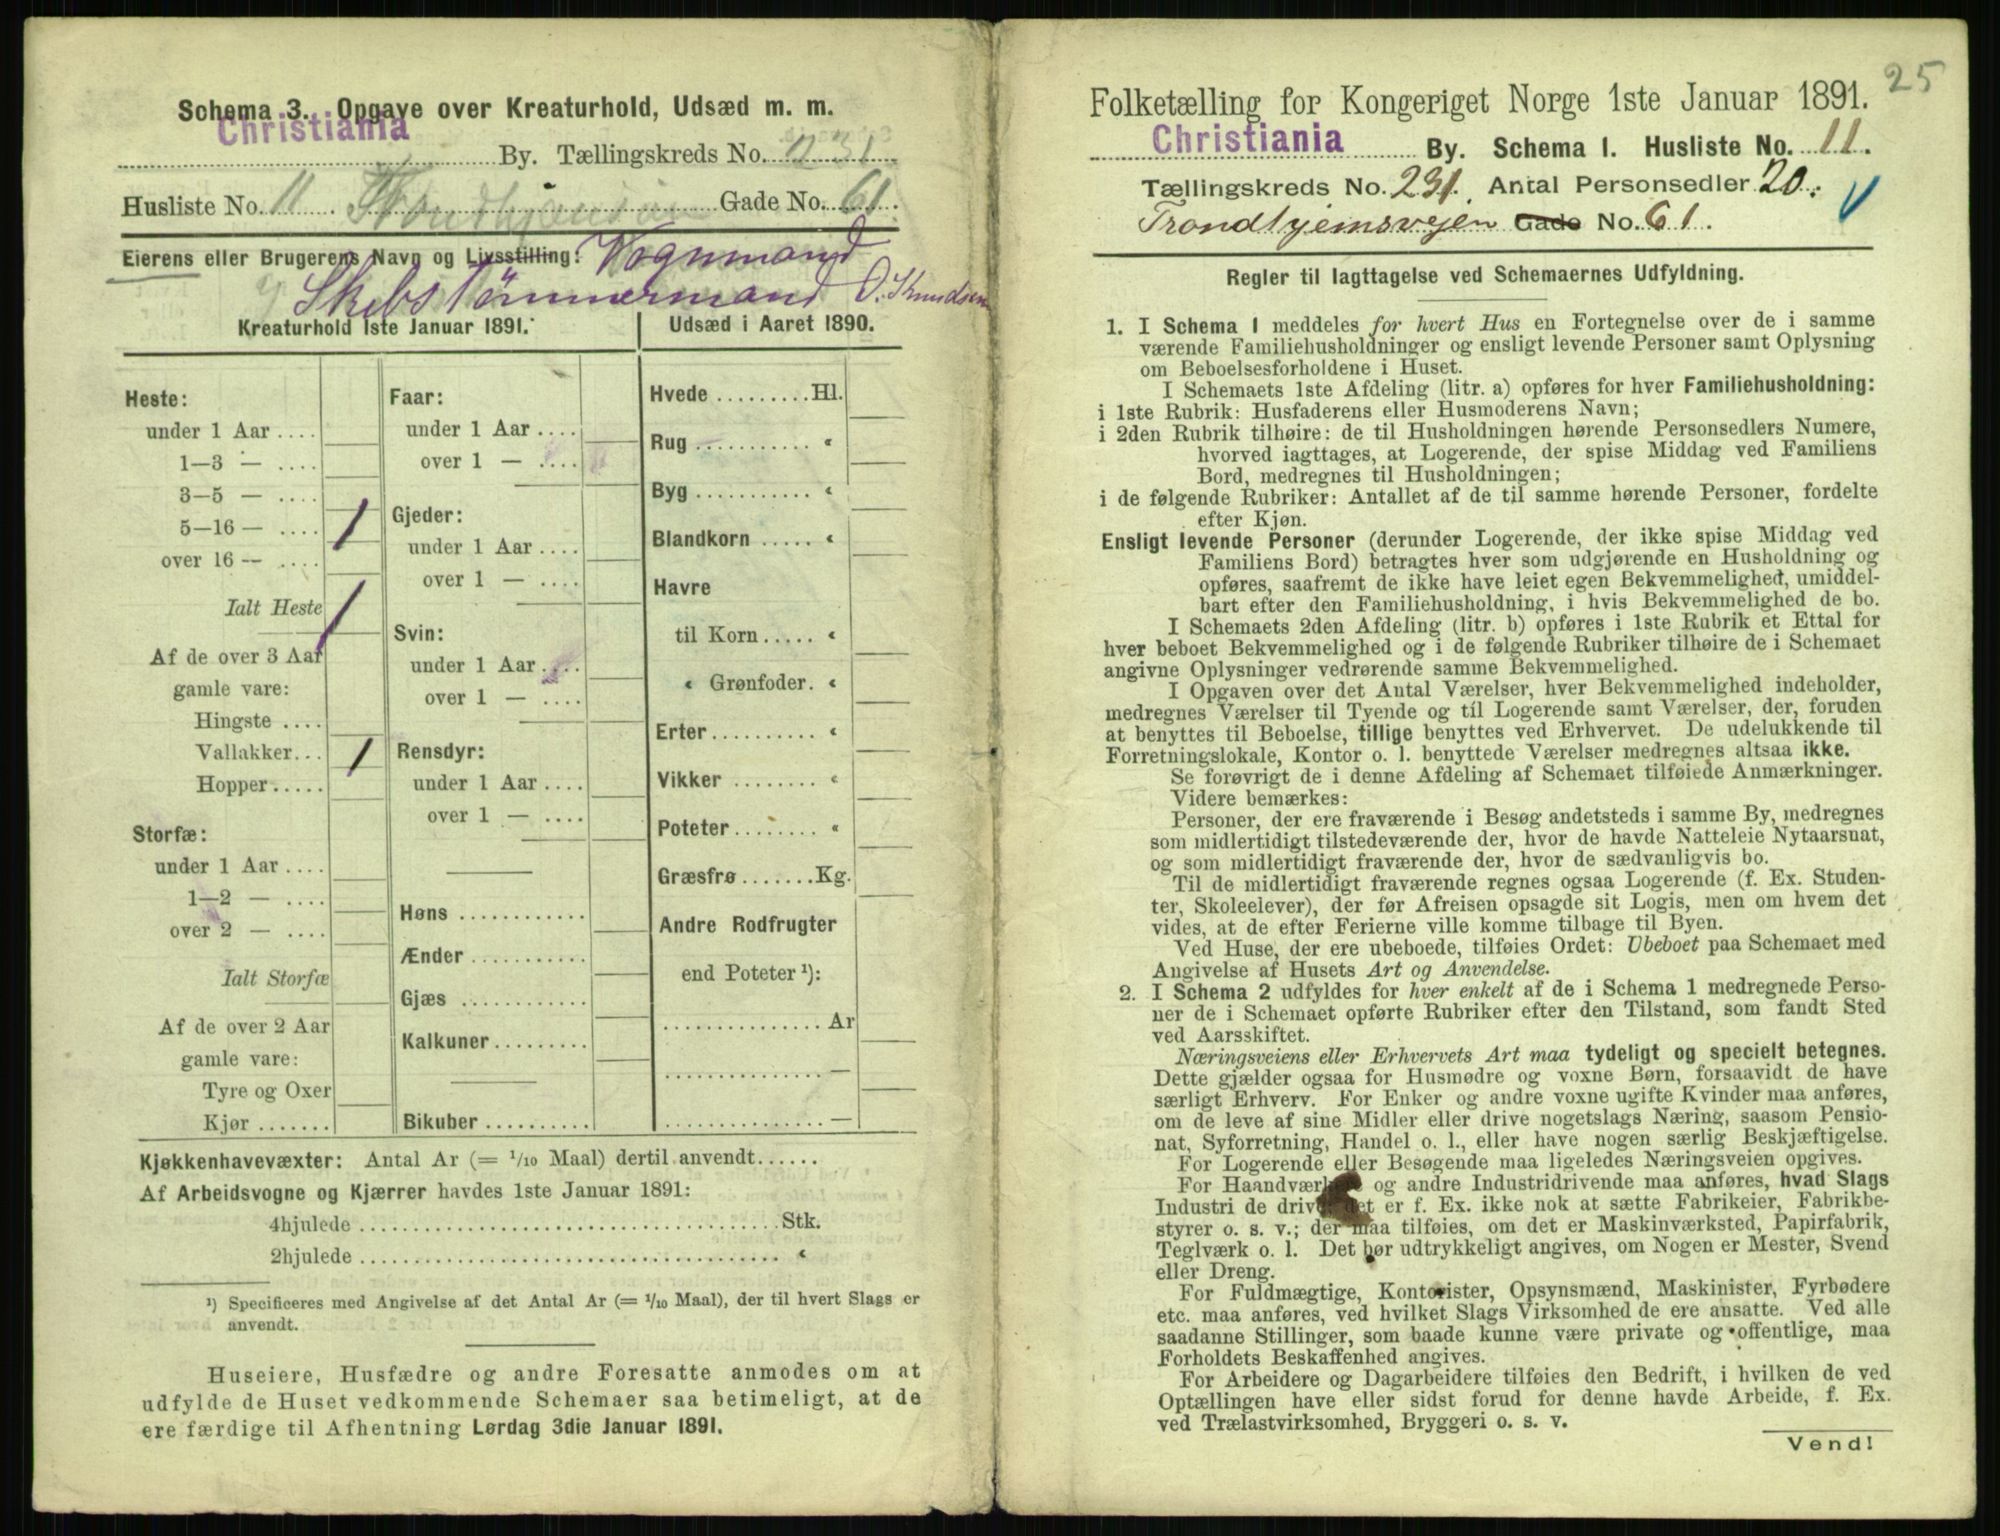 Schema 3. Opgave over Kreaturhold, Udsæd m. m.
Christiania
By. Tællingskreds No. 231.
Husliste No. 11 Trondhjemsveien Gade No. 61.
Eierens eller Brugerens Navn og Livsstilling: Vognmand
Skibstömmermand O. Knudsen
Kreaturhold 1ste Januar 1891.
Udsæd i Aaret 1890.
Heste:
under 1 Aar ....
1—3 — ....
3—5 — ....
5—16 — .... 1
over 16 — ....
Ialt Heste 1
Af de over 3 Aar
gamle vare:
Hingste ....
Vallakker... 1
Hopper.....
Storfæ:
under 1 Aar ....
1—2 — ....
over 2 — ....
Ialt Storfæ
Af de over 2 Aar
gamle vare:
Tyre og Oxer
Kjør .......
Faar:
under 1 Aar ....
over 1 — ....
Gjeder:
under 1 Aar ....
over 1 — ....
Svin:
under 1 Aar ....
over 1 — ....
Rensdyr:
under 1 Aar ....
over 1 — ....
Høns ............
Ænder ...........
Gjæs ............
Kalkuner.........
Bikuber ..........
Hvede .........Hl.
Rug ........... «
Byg ........... «
Blandkorn ..... «
Havre
til Korn..... «
« Grønfoder. «
Erter.......... «
Vikker ........ «
Poteter........ «
Græsfrø .......Kg.
Andre Rodfrugter
end Poteter ¹):
...............Ar
............... —
............... —
Kjøkkenhavevæxter: Antal Ar (= 1/10 Maal) dertil anvendt......
Af Arbeidsvogne og Kjærrer havdes 1ste Januar 1891:
4hjulede ........................................Stk.
2hjulede ........................................ «
¹) Specificeres med Angivelse af det Antal Ar (= 1/10 Maal), der til hvert Slags er
anvendt.
Huseiere, Husfædre og andre Foresatte anmodes om at
udfylde de Huset vedkommende Schemaer saa betimeligt, at de
ere færdige til Afhentning Lørdag 3die Januar 1891.
25
Folketælling for Kongeriget Norge 1ste Januar 1891.
Christiania By. Schema 1. Husliste No. 11.
Tællingskreds No. 231. Antal Personsedler 20.
Trondhjemsvejen Gade No. 61.
Regler til Iagttagelse ved Schemaernes Udfyldning.
1. I Schema 1 meddeles for hvert Hus en Fortegnelse over de i samme
værende Familiehusholdninger og ensligt levende Personer samt Oplysning
om Beboelsesforholdene i Huset.
I Schemaets 1ste Afdeling (litr. a) opføres for hver Familiehusholdning:
i 1ste Rubrik: Husfaderens eller Husmoderens Navn;
i 2den Rubrik tilhøire: de til Husholdningen hørende Personsedlers Numere,
hvorved iagttages, at Logerende, der spise Middag ved Familiens
Bord, medregnes til Husholdningen;
i de følgende Rubriker: Antallet af de til samme hørende Personer, fordelte
efter Kjøn.
Ensligt levende Personer (derunder Logerende, der ikke spise Middag ved
Familiens Bord) betragtes hver som udgjørende en Husholdning og
opføres, saafremt de ikke have leiet egen Bekvemmelighed, umiddel-
bart efter den Familiehusholdning, i hvis Bekvemmelighed de bo.
I Schemaets 2den Afdeling (litr. b) opføres i 1ste Rubrik et Ettal for
hver beboet Bekvemmelighed og i de følgende Rubriker tilhøire de i Schemaet
angivne Oplysninger vedrørende samme Bekvemmelighed.
I Opgaven over det Antal Værelser, hver Bekvemmelighed indeholder,
medregnes Værelser til Tyende og til Logerende samt Værelser, der, foruden
at benyttes til Beboelse, tillige benyttes ved Erhvervet. De udelukkende til
Forretningslokale, Kontor o. l. benyttede Værelser medregnes altsaa ikke.
Se forøvrigt de i denne Afdeling af Schemaet tilføiede Anmærkninger.
Videre bemærkes:
Personer, der ere fraværende i Besøg andetsteds i samme By, medregnes
som midlertidigt tilstedeværende der, hvor de havde Natteleie Nytaarsnat,
og som midlertidigt fraværende der, hvor de sædvanligvis bo.
Til de midlertidigt fraværende regnes ogsaa Logerende (f. Ex. Studen-
ter, Skoleelever), der før Afreisen opsagde sit Logis, men om hvem det
vides, at de efter Ferierne ville komme tilbage til Byen.
Ved Huse, der ere ubeboede, tilføies Ordet: Ubeboet paa Schemaet med
Angivelse af Husets Art og Anvendelse.
2. I Schema 2 udfyldes for hver enkelt af de i Schema 1 medregnede Perso-
ner de i Schemaet opførte Rubriker efter den Tilstand, som fandt Sted
ved Aarsskiftet.
Næringsveiens eller Erhvervets Art maa tydeligt og specielt betegnes.
Dette gjælder ogsaa for Husmødre og voxne Børn, forsaavidt de have
særligt Erhverv. For Enker og andre voxne ugifte Kvinder maa anføres,
om de leve af sine Midler eller drive nogetslags Næring, saasom Pensio-
nat, Syforretning, Handel o. l., eller have nogen særlig Beskjæftigelse.
For Logerende eller Besøgende maa ligeledes Næringsveien opgives.
For Haandværkere og andre Industridrivende maa anføres, hvad Slags
Industri de drive; det er f. Ex. ikke nok at sætte Fabrikeier, Fabrikbe-
styrer o. s. v.; der maa tilføies, om det er Maskinværksted, Papirfabrik,
Teglværk o. l. Det bør udtrykkeligt angives, om Nogen er Mester, Svend
eller Dreng.
For Fuldmægtige, Kontorister, Opsynsmænd, Maskinister, Fyrbødere
etc. maa anføres, ved hvilket Slags Virksomhed de ere ansatte. Ved alle
saadanne Stillinger, som baade kunne være private og offentlige, maa
Forholdets Beskaffenhed angives.
For Arbeidere og Dagarbeidere tilføies den Bedrift, i hvilken de ved
Optællingen have eller sidst forud for denne havde Arbeide, f. Ex.
ved Trælastvirksomhed, Bryggeri o. s. v.
Vend!